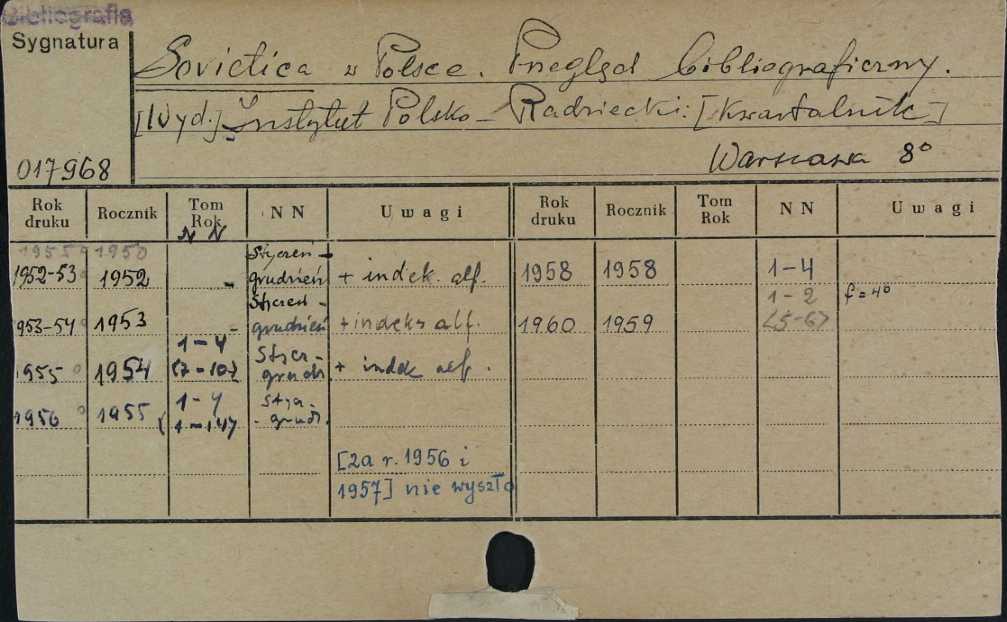 Bibliografia
Sygnatura
Sovietica w Polsce. Przegląd bibliograficzny.
[Wyd.] Instytut Polsko-Radziecki. [Kwartalnik]
Warszawa 8°
017968
Rok druku Rocznik Tom Rok NN Uwagi Rok druku Rocznik Tom Rok NN Uwagi
NN
1955 1950 Styczeń -
1952-53 1952 - grudzień + indek. alf. 1958 1958 1-4
Styczeń - 1-2 f = 4°
1953-54 1953 - grudzień + indeks alf. 1960 1959 (5-6)
1-4 Stycz-
1955 1954 (7-10) grudz + indek alf.
1-4 stycz-
1956 1955 - grudz.
[Za r. 1956 i
1957] nie wyszło